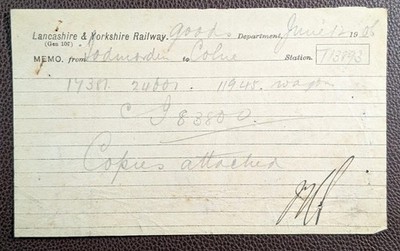 Lancashire & Yorkshire Railway. Goods Department, June 12 19
(Gen 106)
MEMO. from Todmorden to Colne Station. 713993
17381. 24001. 11945. wagon
83880.
Copies attached